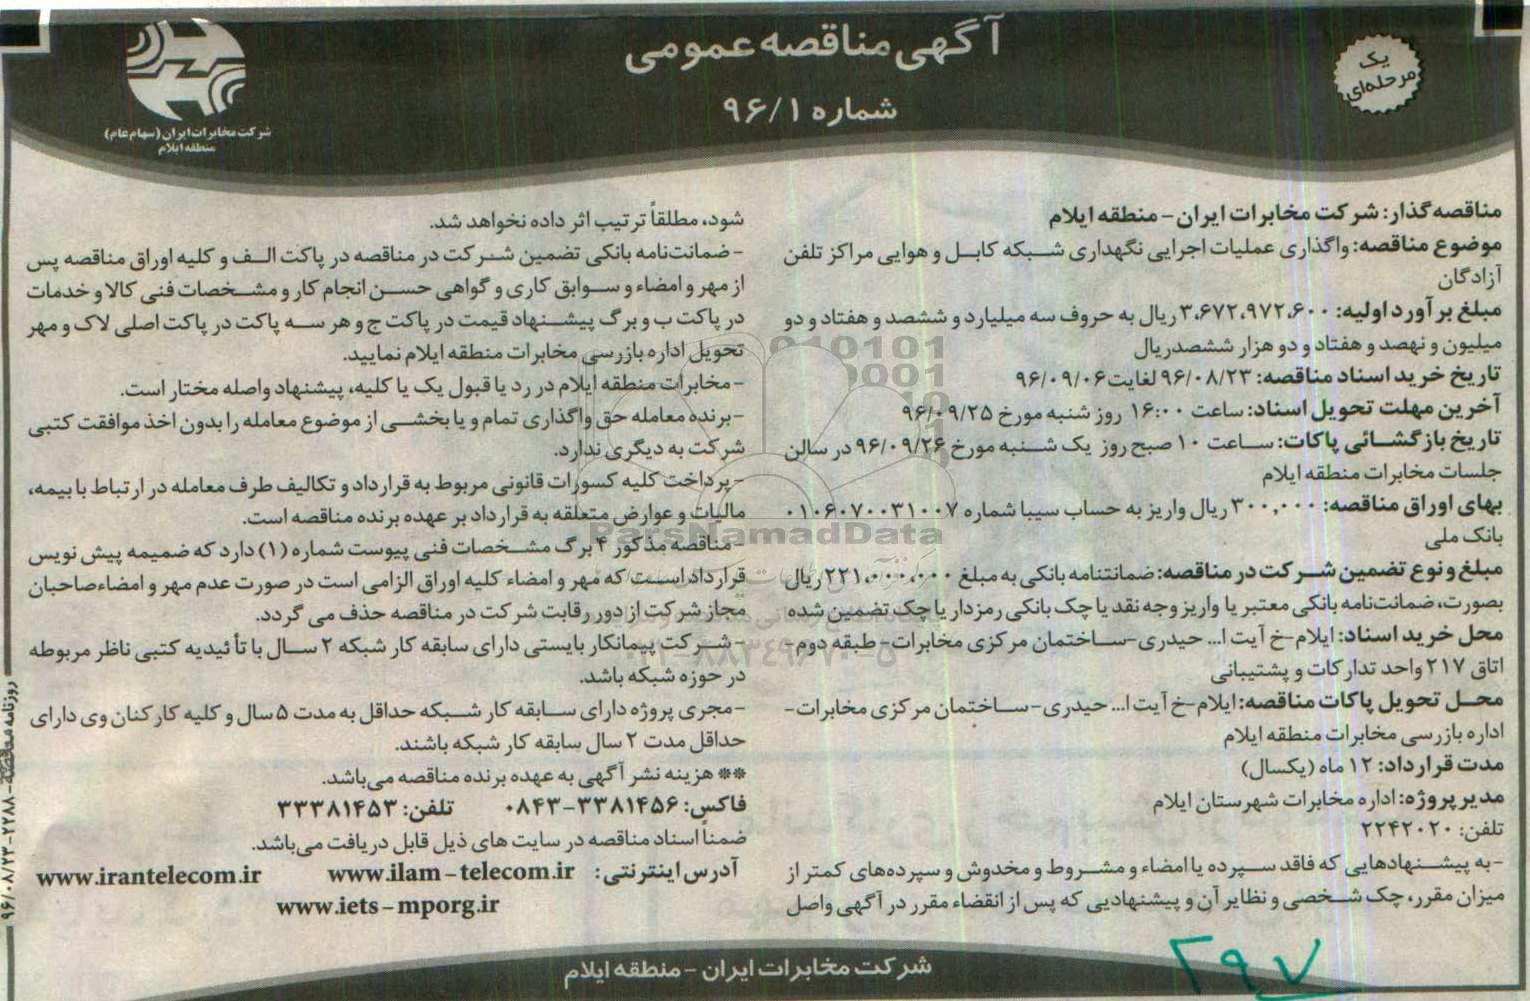 آگهی مناقصه عمومی
شماره ۹۶/۱
یک
مرحله‌ای
شرکت مخابرات ایران (سهام عام)
منطقه ایلام
مناقصه گذار: شرکت مخابرات ایران - منطقه ایلام
موضوع مناقصه: واگذاری عملیات اجرایی نگهداری شبکه کابل و هوایی مراکز تلفن
آزادگان
مبلغ برآورد اولیه: ۳،۶۷۲،۹۷۲،۶۰۰ ریال به حروف سه میلیارد و ششصد و هفتاد و دو
میلیون و نهصد و هفتاد و دو هزار ششصدریال
تاریخ خرید اسناد مناقصه: ۹۶/۰۸/۲۳ لغایت ۹۶/۰۹/۰۶
آخرین مهلت تحویل اسناد: ساعت ۱۶:۰۰ روز شنبه مورخ ۹۶/۰۹/۲۵
تاریخ بازگشائی پاکات: ساعت ۱۰ صبح روز یک شنبه مورخ ۹۶/۰۹/۲۶ در سالن
جلسات مخابرات منطقه ایلام
بهای اوراق مناقصه: ۳۰۰,۰۰۰ ریال واریز به حساب سیبا شماره ۰۱۰۶۰۷۰۰۳۱۰۰۷
بانک ملی
مبلغ و نوع تضمین شرکت در مناقصه: ضمانتنامه بانکی به مبلغ ۲۲۱،۰۰۰،۰۰۰ ریال
بصورت، ضمانت‌نامه بانکی معتبر یا واریز وجه نقد یا چک بانکی رمزدار یا چک تضمین شده
محل خرید اسناد: ایلام-خ آیت ا... حیدری-ساختمان مرکزی مخابرات-طبقه دوم-
اتاق ۲۱۷ واحد تدارکات و پشتیبانی
محل تحویل پاکات مناقصه: ایلام-خ آیت ا... حیدری-ساختمان مرکزی مخابرات-
اداره بازرسی مخابرات منطقه ایلام
مدت قرارداد: ۱۲ ماه (یکسال)
مدیر پروژه: اداره مخابرات شهرستان ایلام
تلفن: ۲۲۴۲۰۲۰
-به پیشنهادهایی که فاقد سپرده یا امضاء و مشروط و مخدوش و سپرده‌های کمتر از
میزان مقرر، چک شخصی و نظایر آن و پیشنهادیی که پس از انقضاء مقرر در آگهی واصل
شود، مطلقاً ترتیب اثر داده نخواهد شد.
-ضمانت‌نامه بانکی تضمین شرکت در مناقصه در پاکت الف و کلیه اوراق مناقصه پس
از مهر و امضاء و سوابق کاری و گواهی حسن انجام کار و مشخصات فنی کالا و خدمات
در پاکت ب و برگ پیشنهاد قیمت در پاکت ج و هر سه پاکت در پاکت اصلی لاک و مهر
تحویل اداره بازرسی مخابرات منطقه ایلام نمایید.
-مخابرات منطقه ایلام در رد یا قبول یک یا کلیه، پیشنهاد واصله مختار است.
-برنده معامله حق واگذاری تمام و یا بخشی از موضوع معامله را بدون اخذ موافقت کتبی
شرکت به دیگری ندارد.
-پرداخت کلیه کسورات قانونی مربوط به قرارداد و تکالیف طرف معامله در ارتباط با بیمه،
مالیات و عوارض متعلقه به قرارداد بر عهده برنده مناقصه است.
-مناقصه مذکور ۴ برگ مشخصات فنی پیوست شماره (۱) دارد که ضمیمه پیش نویس
قرارداد است که مهر و امضاء کلیه اوراق الزامی است در صورت عدم مهر و امضاءصاحبان
مجاز شرکت از دور رقابت شرکت در مناقصه حذف می گردد.
-شرکت پیمانکار بایستی دارای سابقه کار شبکه ۲ سال با تأئیدیه کتبی ناظر مربوطه
در حوزه شبکه باشد.
-مجری پروژه دارای سابقه کار شبکه حداقل به مدت ۵ سال و کلیه کارکنان وی دارای
حداقل مدت ۲ سال سابقه کار شبکه باشند.
** هزینه نشر آگهی به عهده برنده مناقصه می‌باشد.
فاکس: ۳۳۸۱۴۵۶-۰۸۴۳ تلفن: ۳۳۳۸۱۴۵۳
ضمناً اسناد مناقصه در سایت های ذیل قابل دریافت می‌باشد.
آدرس اینترنتی: www.ilam-telecom.ir www.irantelecom.ir
www.iets-mporg.ir
شرکت مخابرات ایران - منطقه ایلام
روزنامه مناقصه-۲۲۸۸-۹۶/۰۸/۲۳
ParsNamadData
۲۹۷